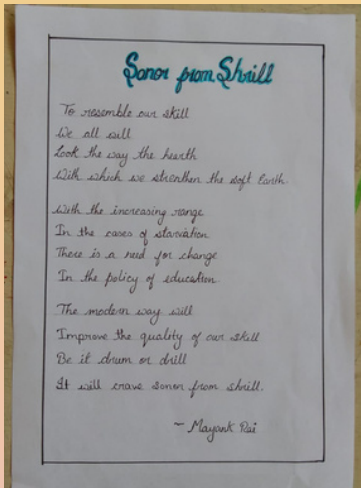 Sonor from Shrill
To resemble our skill
We all will
Look the way the hearth
With which we strenthen the soft Earth.
With the increasing range
In the cases of starvation
There is a need for change
In the policy of education.
The modern way will
Improve the quality of our skill
Be it drum or drill
It will crave sonor from shrill.
~ Mayank Rai